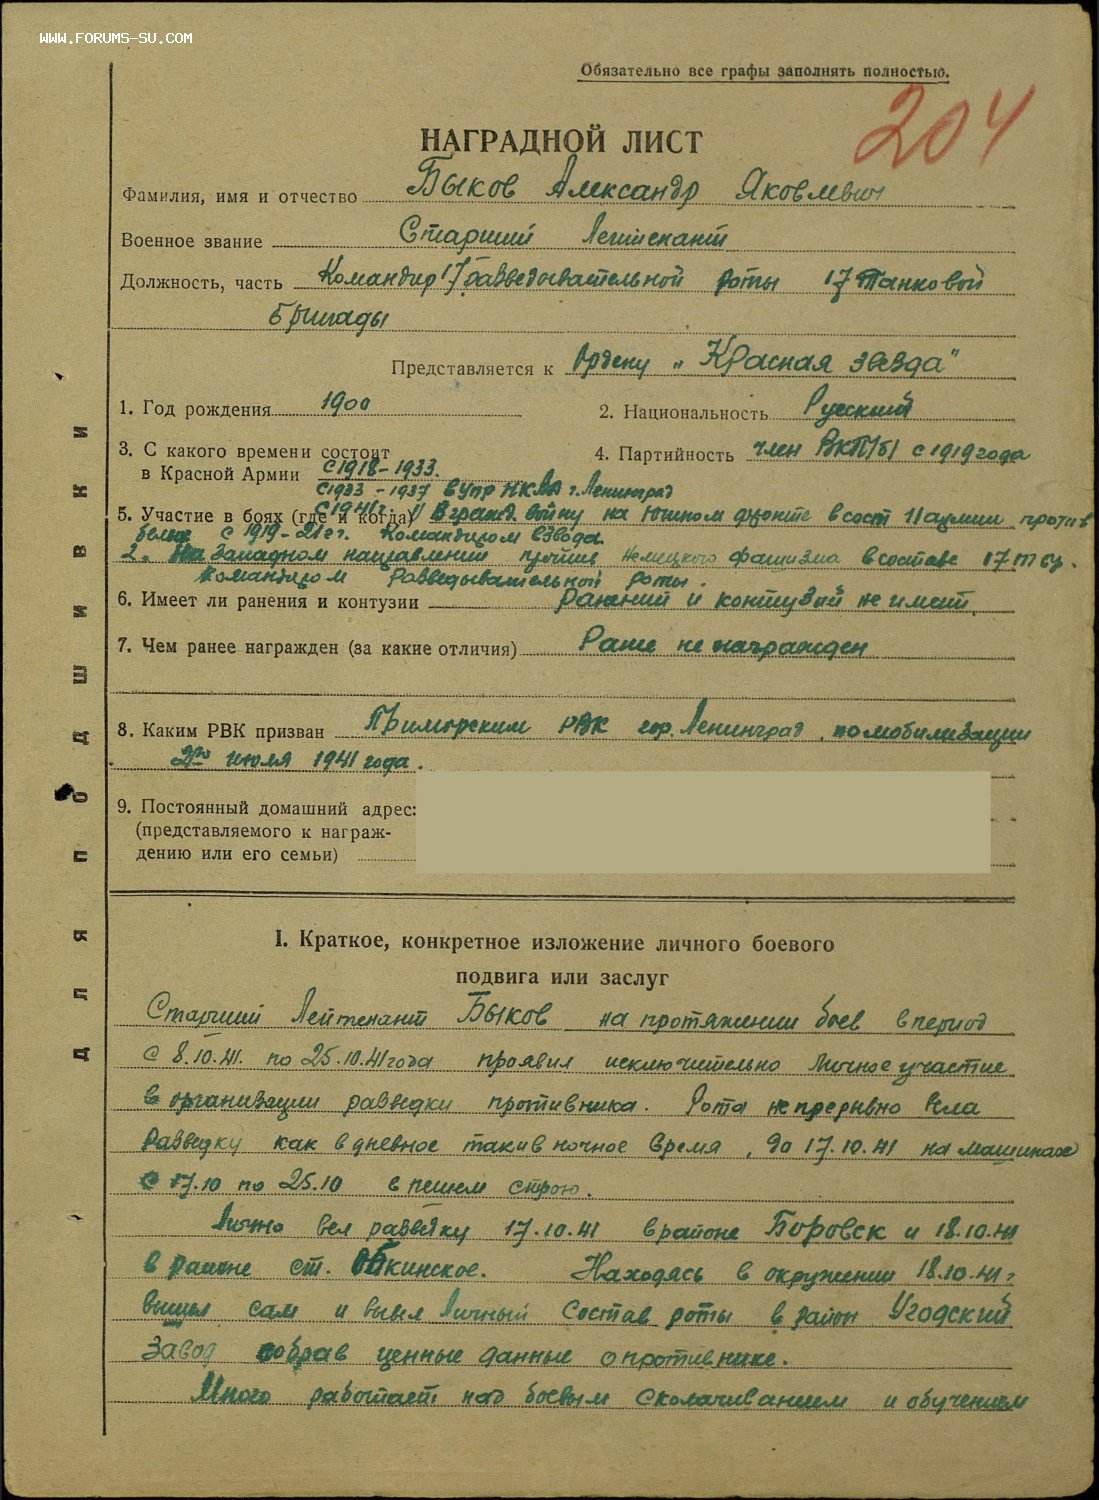 WWW.FORUMS-SU.COM
Обязательно все графы заполнять полностью.
204
НАГРАДНОЙ ЛИСТ
Фамилия, имя и отчество Быков Александр Яковлевич
Военное звание Старший Лейтенант
Должность, часть Командир 17 разведывательной роты 17 Танковой
бригады
Представляется к Ордену „Красная звезда"
1. Год рождения 1900
2. Национальность Русский
3. С какого времени состоит
в Красной Армии с 1918-1933.
4. Партийность член ВКП/б/ с 1919 года
с 1933 - 1937 в Упр НКВД г. Ленинград
с 1941 г.
5. Участие в боях (где и когда) 1/ В гражд. войну на Южном фронте в сост 11 армии против
белых с 1919-21 г. Командиром взвода.
2. На Западном направлении против немецкого фашизма в составе 17 т бр.
Командиром разведывательной роты.
6. Имеет ли ранения и контузии ранений и контузий не имеет.
7. Чем ранее награжден (за какие отличия) Ранее не награжден
8. Каким РВК призван Приморским РВК гор. Ленинград, по мобилизации
2го июля 1941 года.
9. Постоянный домашний адрес:
(представляемого к награж-
дению или его семьи)
ДЛЯ ПОДШИВКИ
I. Краткое, конкретное изложение личного боевого
подвига или заслуг
Старший Лейтенант Быков на протяжении боев в период
с 8.10.41. по 25.10.41 года проявил исключительно личное участие
в организации разведки противника. Рота непрерывно вела
разведку как в дневное так и в ночное время, до 17.10.41 на машинах
с 17.10 по 25.10 в пешем строю.
Лично вел разведку 17.10.41 в районе Боровск и 18.10.41
в районе ст. Обнинское. Находясь в окружении 18.10.41 г
вышел сам и вывел личный состав роты в район Угодский
Завод собрав ценные данные о противнике.
Много работает над боевым сколачиванием и обучением